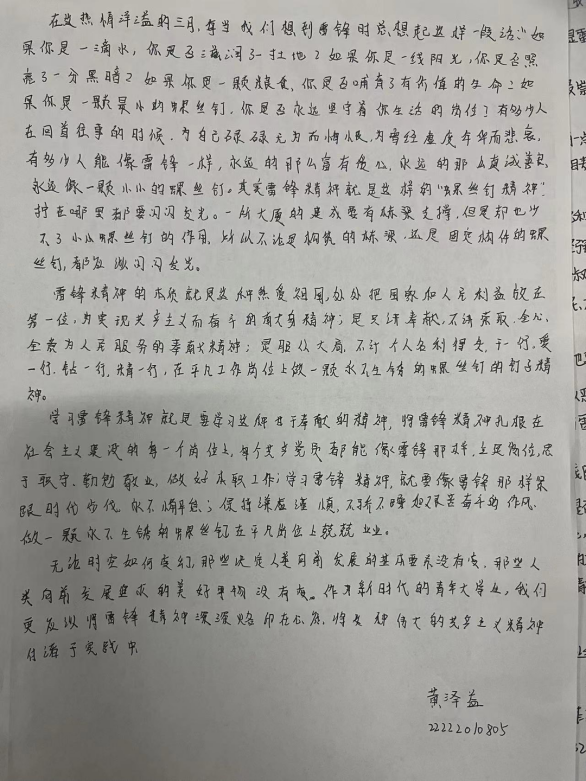 在这热情洋溢的三月，每当我们想到雷锋时总想起这样一段话："如
果你是一滴水，你是否滋润了一拄地？如果你是一线阳光，你是否照
亮了一分黑暗？如果你是一颗粮食，你是否哺育了有价值的生命？如
果你是一颗最小的螺丝钉，你是否永远坚守着你生活的岗位？有多少人
在回首往事的时候，为自己碌碌无为而悔恨，为曾经虚度年华而悲哀，
有多少人能像雷锋一样，永远的那么富有爱心，永远的那么真诚善良，
永远做一颗小小的螺丝钉。其实雷锋精神就是这样的"螺丝钉精神"
拧在哪里都要闪闪发光。一所大厦的建成要有栋梁支撑，但是却也少
不了小小螺丝钉的作用，所以不论是钢筋的栋梁，还是固定构件的螺
丝钉，都应该闪闪发光。
雷锋精神的本质就是这种热爱祖国，处处把国家和人民利益放在
第一位，为实现共产主义而奋斗的献身精神；是只讲奉献，不讲索取，全心
全意为人民服务的奉献精神；是服从大局，不计个人名利得失，干一行，爱
一行，钻一行，精一行，在平凡工作岗位上做一颗永不生锈的螺丝钉的钉子精
神。
学习雷锋精神就是要学习这种甘于奉献的精神，将雷锋精神扎根在
社会主义建设的每一个岗位上，每个共产党员都能像雷锋那样，立足岗位，忠
于职守，勤勉敬业，做好本职工作；学习雷锋精神，就要像雷锋那样紧
跟时代步伐，永不懈怠；保持谦虚谨慎，不骄不躁和艰苦奋斗的作风，
做一颗永不生锈的螺丝钉在平凡岗位上兢兢业业。
无论时空如何变幻，那些决定人类向前发展的基本要素没有变，那些人
类向前发展追求的美好事物没有变。作为新时代的青年大学生，我们
更应该将雷锋精神深深烙印在心底，将这种伟大的共产主义精神
付诸于实践中
黄泽益
22222010805